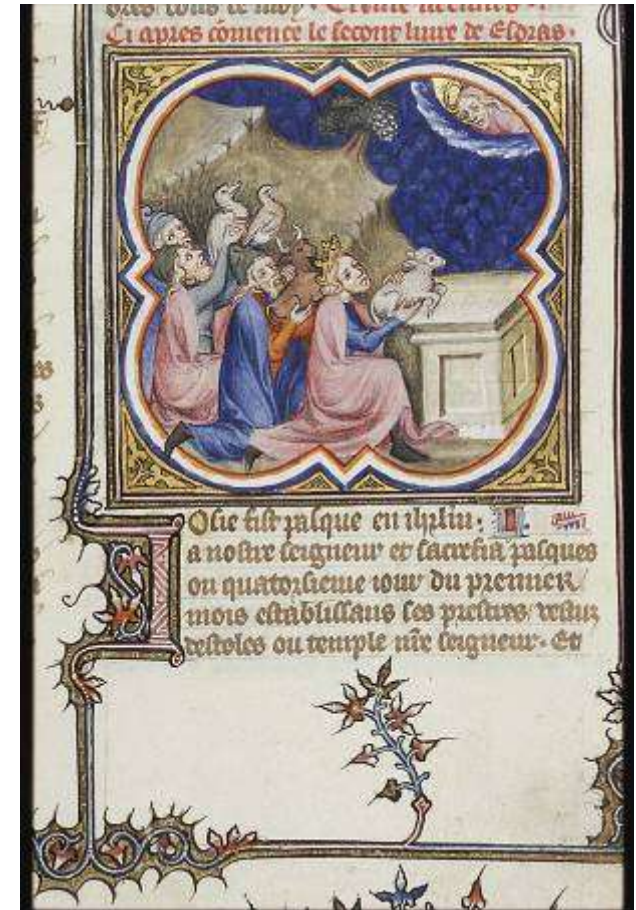 Ci apres cōmence le second liure de Esdras.
Iosie fist pasque en ihrlm̄.
a nostre seigneur et sacrefia pasques
ou quatorsieme iour du premier
mois establissans ses prestres vestuz
destoles ou temple nr̄e seigneur. Et